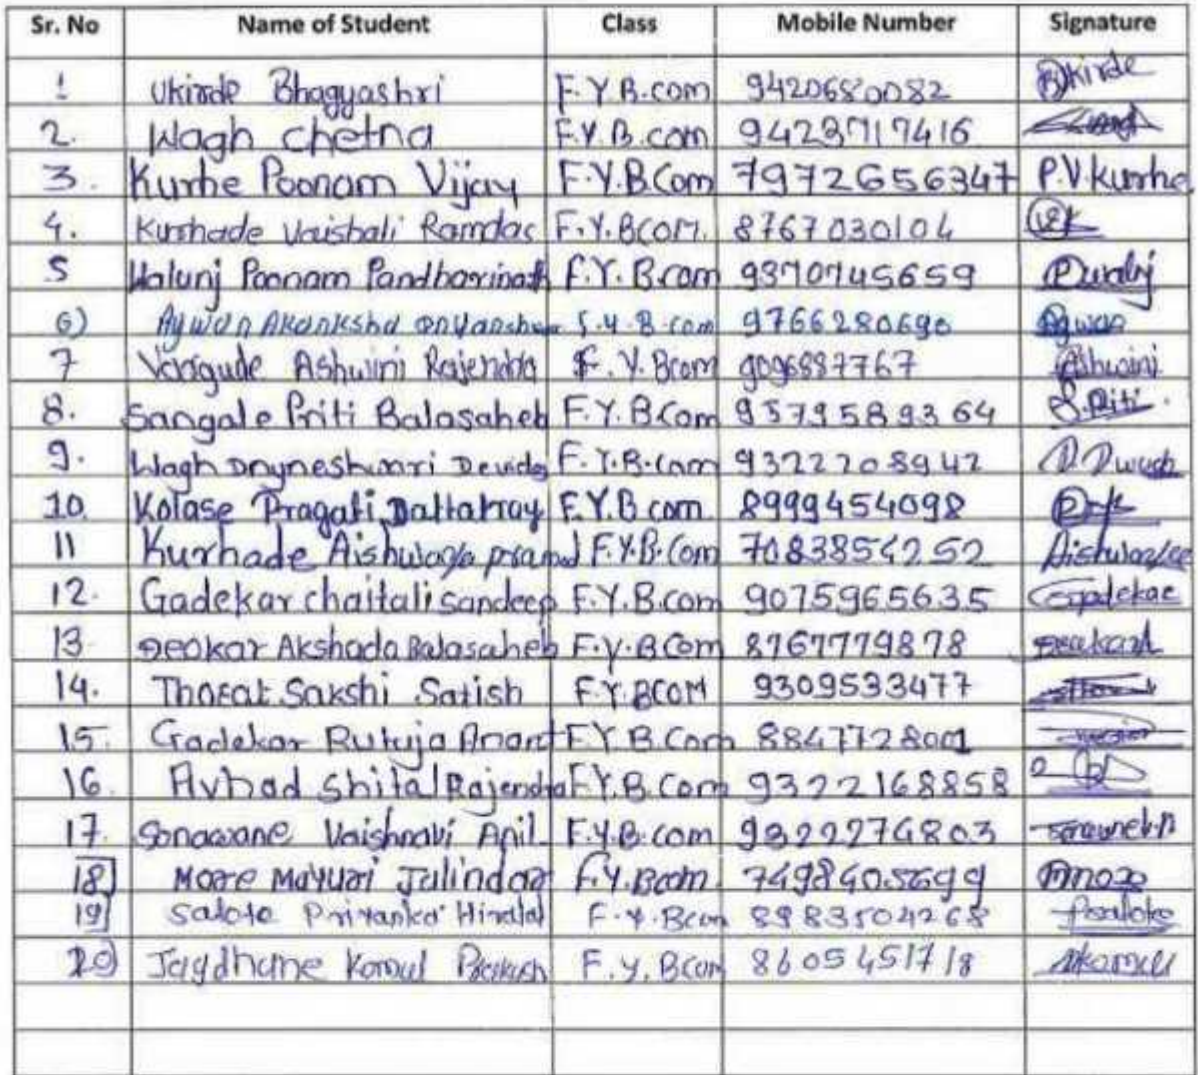 Sr. No Name of Student Class Mobile Number Signature
1 Ukirde Bhagyashri F.Y.B.com 9420680082 Bkirde
2. Wagh chetna F.Y.B.com 9423717416
3. Kurhe Poonam Vijay F.Y.BCom 7972656347 P.V.Kurhe
4. Kurhade Vaishali Ramdas F.Y.BCOM. 8767030104
5 Walunj Poonam Pandharinath F.Y.B.com 9370745659 Pwalunj
6) Aywan Akanksha S.Y.B.com 9766280690 Aywan
7 Varagude Ashwini Rajendra F.Y.Bcom 9096887767 Ashwini
8. Sangale Priti Balasaheb F.Y.BCom 9579589364 S.Priti.
9. Wagh Dnyneshwari Devidas F.Y.B.com 9322208942
10. Kolase Pragati Dattatray F.Y.B.com 8999454098
11 Kurhade Aishwarya pramod F.Y.B.Com 7083854252 Aishwarya
12. Gadekar chaitali sandeep F.Y.B.com 9075965635 Gadekar
13 Deokar Akshada Balasaheb F.Y.BCom 8767779878 Deokar
14. Thorat Sakshi Satish F.Y.BCOM 9309533477
15. Gadekar Rutuja Anant F.Y.B.Com 8847728001
16. Avhad Shital Rajendra F.Y.B.Com 9322168858
17. Sonawane Vaishnavi Anil F.Y.B.com 9322274803
18] More Mayuri Jalindar F.Y.Bcom. 7498405699 Mmore
19] Salote Priyanka Hiralal F.Y.Bcom 8983504268 Psalote
20) Jagdhane Komal Prakash F.Y.BCom 8605451718